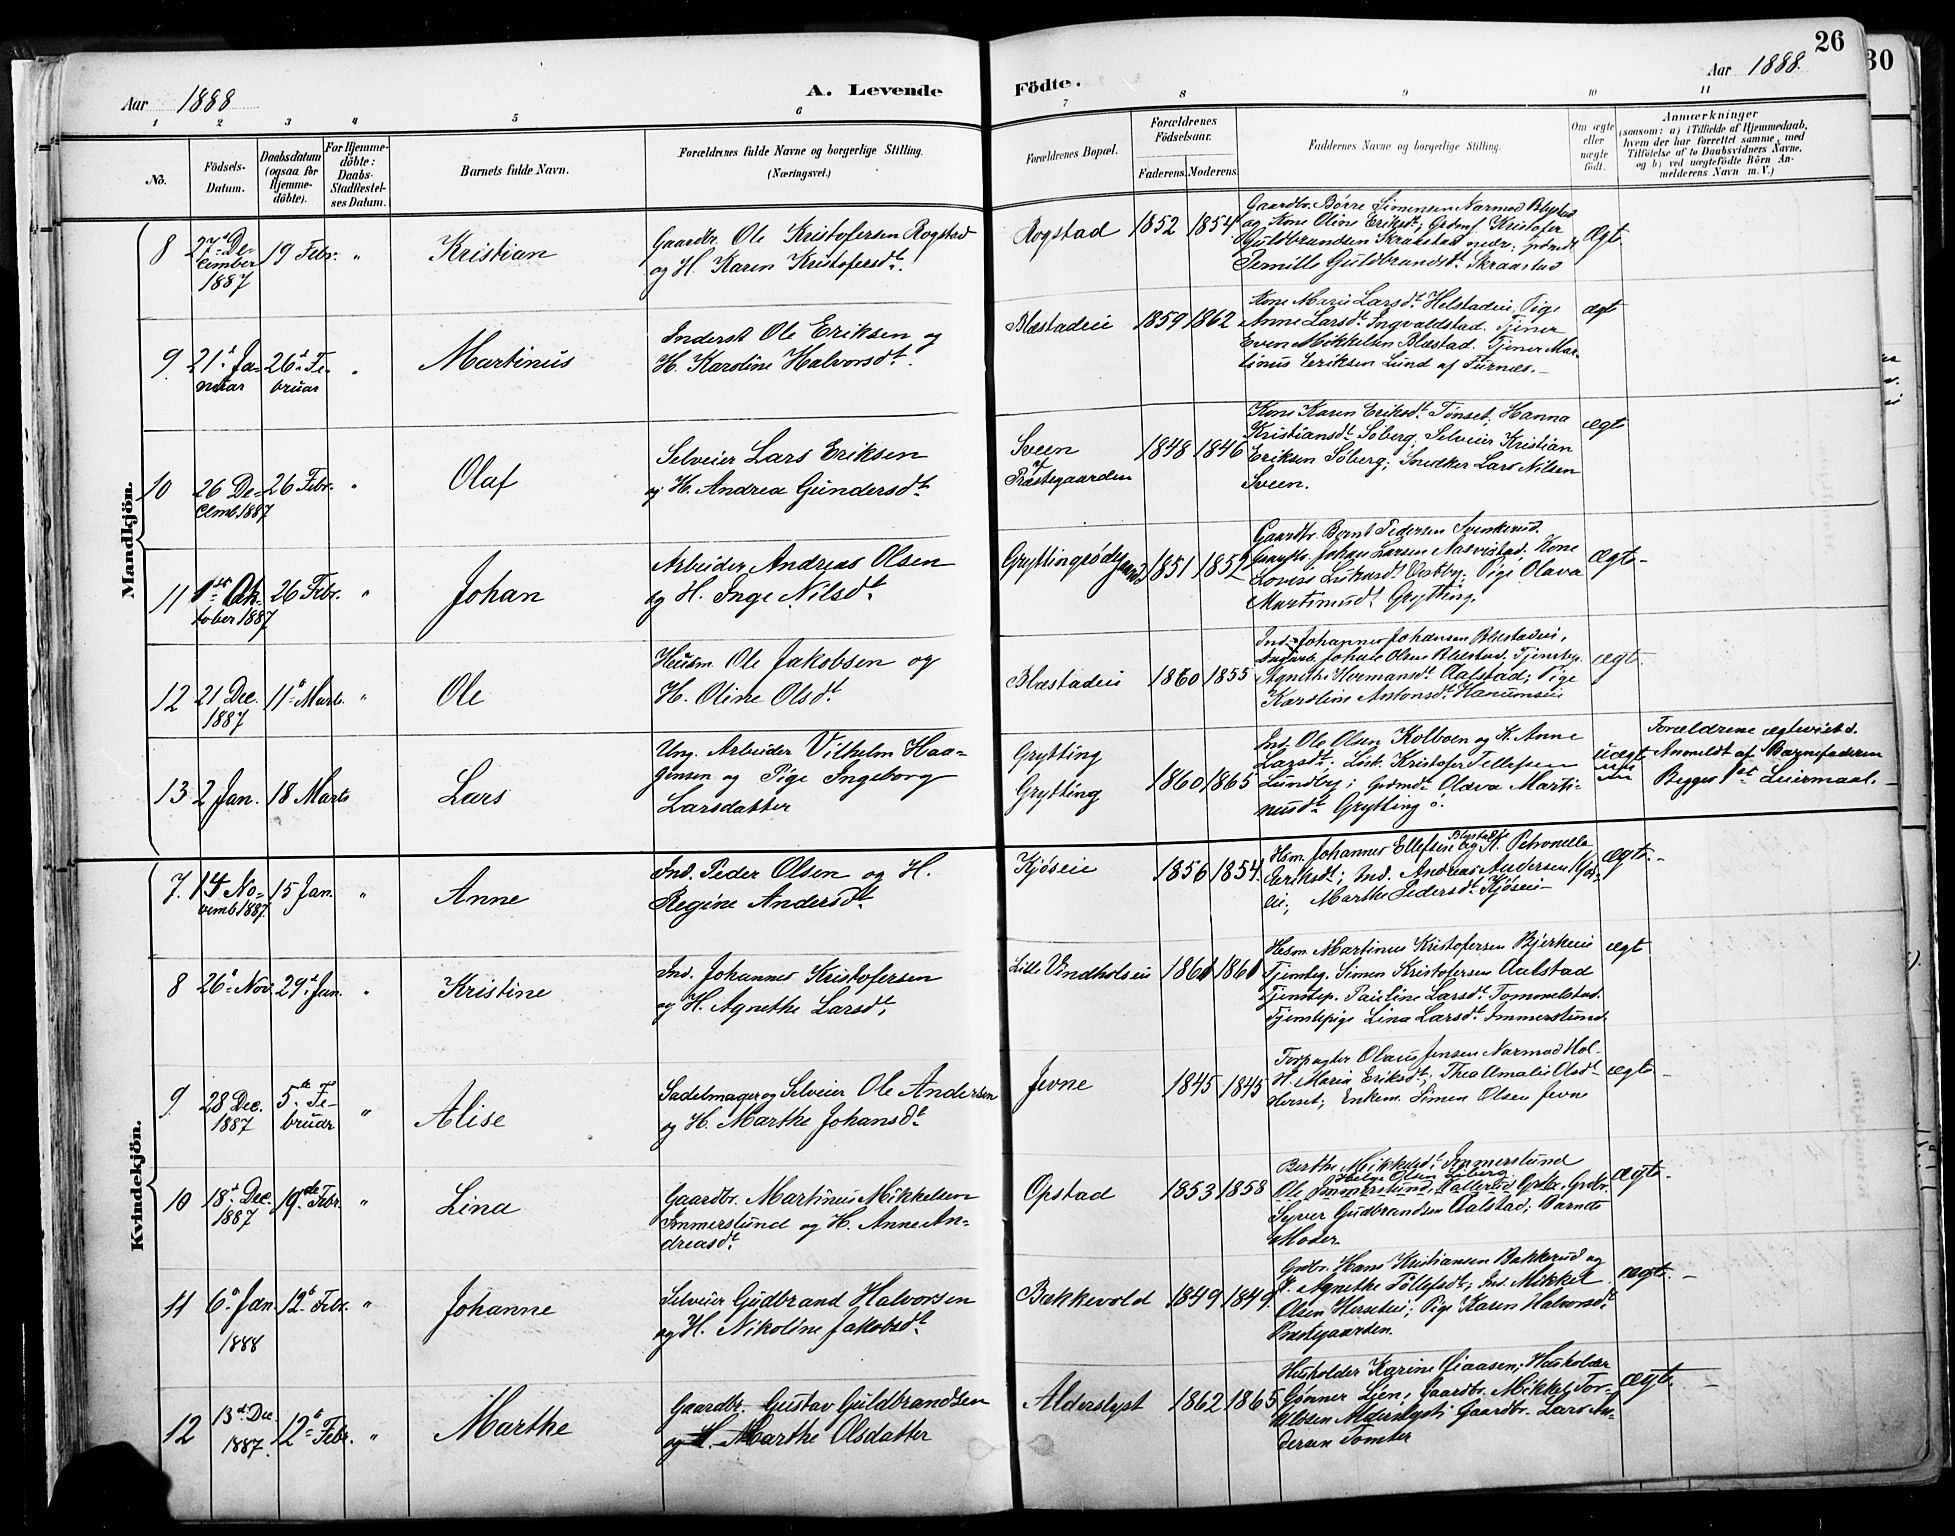 26
30
Aar 1888
A. Levende
Fødte.
Aar 1888.
1 2 3 4 5 6 7 8 9 10 11
No.
Fødsels-Datum.
Daabsdatum (ogsaa for Hjemmedøbte).
For Hjemmedøbte: Daabs-Stadfæstelses Datum.
Barnets fulde Navn.
Forældrenes fulde Navne og borgerlige Stilling. (Næringsvei.)
Forældrenes Bopæl.
Forældrenes Fødselsaar.
Faderens. Moderens.
Faddernes Navne og borgerlige Stilling.
Om ægte eller uægte født.
Anmærkninger
(saasom: a) i Tilfælde af Hjemmedaab, hvem der har forrettet samme, med Tilføielse af to Daabsvidners Navne, og b) ved uægtefødte Børn Anmelderens Navn m. V.)
Mandkjön.
8 27 December 1887 19 Febr. " Kristian
Gaardbr. Ole Kristofersen Rogstad
og H. Karen Kristofersdt.
Rogstad 1852 1854
Gaardbr. Børre Simensen Narmo Blystad
og Kone Oline Eriksdt; Grdmf. Kristofer
Guldbrandsen Skraastad nedr; Grdmdt.
Pernille Guldbrandsdt. Skraastad
Ægt.
9. 21 Januar 26 Februar " Martinus
Inderst Ole Eriksen og
H. Karoline Halvorsdt.
Blæstadeie 1859 1862
Kone Marie Larsdt. Helstadeie, Pige
Anne Larsdt. Ingvaldstad. Tjener
Even Mikkelsen Blæstad. Tjener Mar-
tinus Eriksen Lund af Furnes.
ægt
10 26 Decmb. 1887 26 Febr. " Olaf
Selveier Lars Eriksen
og H. Andrea Gundersdt.
Sveen af Præstegaarden 1848 1846
Kone Karen Eriksdt. Tønset; Hanna
Kristiansdt. Søberg; Selveier Kristian
Eriksen Søberg; Snedker Lars Nilsen
Sveen.
ægt
11 1ste Oktober 1887 26 Febr. " Johan
Arbeider Andreas Olsen
og H. Inge Nilsdt.
Gryttingsødegaard 1851 1852
Gaardbr. Bernt Pedersen Svenkerud.
Gaardbr. Johan Larsen Næsvistad; Kone
Lovise Lukasdt. Vestby; Pige Olava
Martinusdt. Grytting.
Ægt.
12 21 Dec. 1887 11 Marts " Ole
Husm. Ole Jakobsen og
H. Oline Olsdt.
Blæstadeie 1860 1855
Ind. Johannes Johansen Blæstadeie,
Johan Olsen Blæstad. Tjenstep.
Agnethe Hermansdt. Aalstad; Pige
Karoline Antonsdt. Hanumseie
ægt.
13 2 Jan. 18 Marts Lars
Ung. Arbeider Vilhelm Haa-
gensen og Pige Ingeborg
Larsdatter
Grytting
Grytting 1860 1865
Ind. Ole Olsen Kolboen og K. Anne
Larsdt; Kristofer Tollefsen
Lundby; Grdmdt. Olava Marti-
nusdt. Grytting.
uægt
Forældrene ægteviede.
Anmeldt af Barnefaderen
Begges 1st Leiermaal.
Kvindekjön.
7. 14 Novemb. 1887 15 Jan. " Anne
Ind. Peder Olsen og H.
Regine Andersdt.
Kjöseie 1856 1854.
Hsm. Johannes Ellefsen Blystad og K. Petronelle
Eriksdt; Ind. Andreas Andersen Kjøs-
eie; Marthe Pedersdt. Kjöseie
Ægt.
8 26 Nov. 29 Jan. " Kristine
Ind. Johannes Kristofersen
og H. Agnethe Larsdt.
Lille Vindholseie 1861 1861
Husm Martinus Kristofersen Bjerkeeie
Tjensteg. Simen Kristofersen Aalstad
Tjenstep. Pauline Larsdt. Tommelstad.
Tjenstepige Lina Larsdt. Immerslund.
ægt
9. 28 Dec. 1887 5te Februar " Alise
Sadelmager og Selveier Ole Andersen
og H. Marthe Johansdt.
Jevne 1845 1845
Forpagter Olaus Jensen Narmo Hol-
H. Maria Eriksdt; Thea Amalie Olsdt.
Herset; Enkem. Simen Olsen Jevne
ægt.
10 18 Dec. 1887 19de Febr. " Lina
Gaardbr. Martinus Mikkelsen
Immerslund og H. Anne An-
dreasdt.
Opstad 1853 1858
Berthe Mikkelsdt. Immerslund
Helge Olsen Søberg
Ole Immerslund, Grdbr.
Syver Gudbrandsen Aalstad; Barnets
Moder.
Ægt.
11 6 Jan. 1888 12 Febr. " Johanne
Selveier Gudbrand Halvorsen
og H. Nikoline Jakobsdt.
Bækkevold 1849 1849.
Grdbr. Hans Kristiansen Bakkerud og
K. Agnethe Tollefsdt; Ind. Mikkel
Olsen Herseteie; Pige Karen Halvorsdt.
Præstegaarden.
ægt.
12 13 Dec. 1887. 12 Febr. " Marthe
Gaardbr. Gustav Guldbrandsen
og H. Marthe Olsdatter
Alderslyst 1862 1865
Husholder Karine Aaasen; Husholder
Gunner Lien; Gaardbr. Mikkel Tor-
Alderslyst; Gaardbr. Lars An-
dersen Tomter
Ægt.